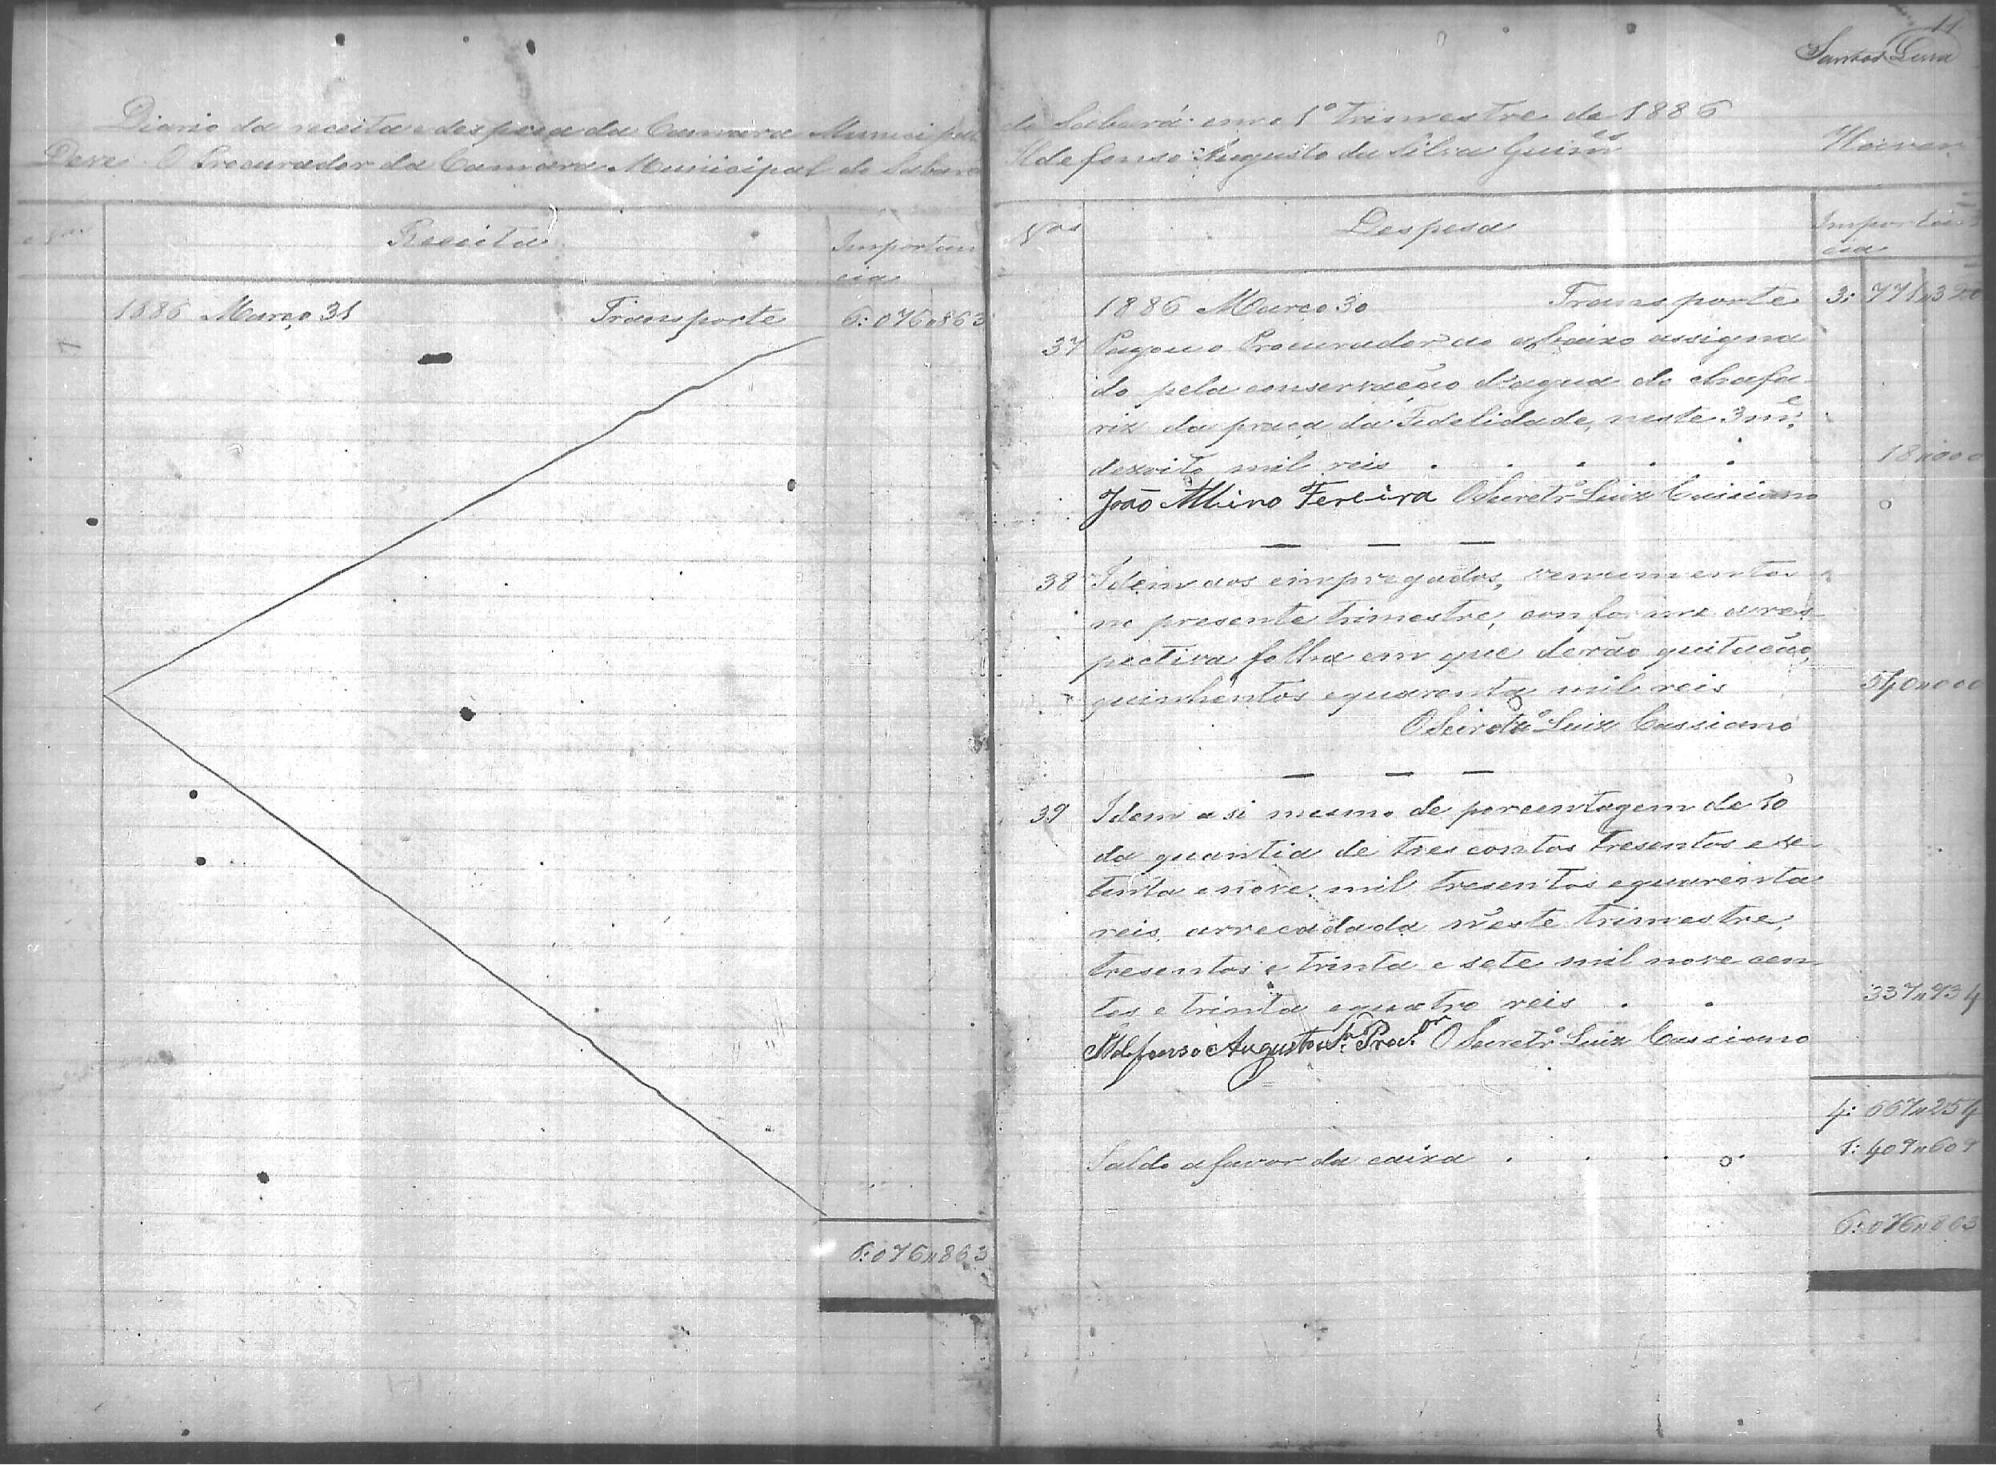 11
Santos Lima
Diario da receita e despesa da Camara Municipal
Deve O Procurador da Camara Municipal de Sabará
Nos
Receita
Importan
cia
1886 Março 31 Transporte 6:076"863
6:076"863
de Sabará em o 1º trimestre de 1886
Ildefonso Augusto da Silva Guimes
Haver
Nos
Despesa
Importan
cia
1886 Março 30 Transporte 3:771"320
37 Pagou o Procurador ao abaixo assigna
do pela conservação d'agua do chafa
riz da praça da Fidelidade, neste 3me.
dezoito mil reis . . . . . 18"000
João Albino Fereira O Secretrº Luiz Cassiano
38 Idem aos empregados, vencimentos
no presente trimestre, conforme a res
pectiva folha em que derão quitação,
quinhentos e quarenta mil reis 540"000
O Secretrº Luiz Cassiano
39 Idem a si mesmo de porcentagem de 10
da quantia de tres contos tresentos e se
tenta e nove mil tresentos e quarenta
reis, arrecadada n'este trimestre,
tresentos e trinta e sete mil nove cen
tos e trinta e quatro reis . . 337"934
Ildefonso Augusto Sa. Procor. O Secretrº Luiz Cassiano
4:667"254
Saldo a favor da caixa . . . . 1:409"609
6:076"863